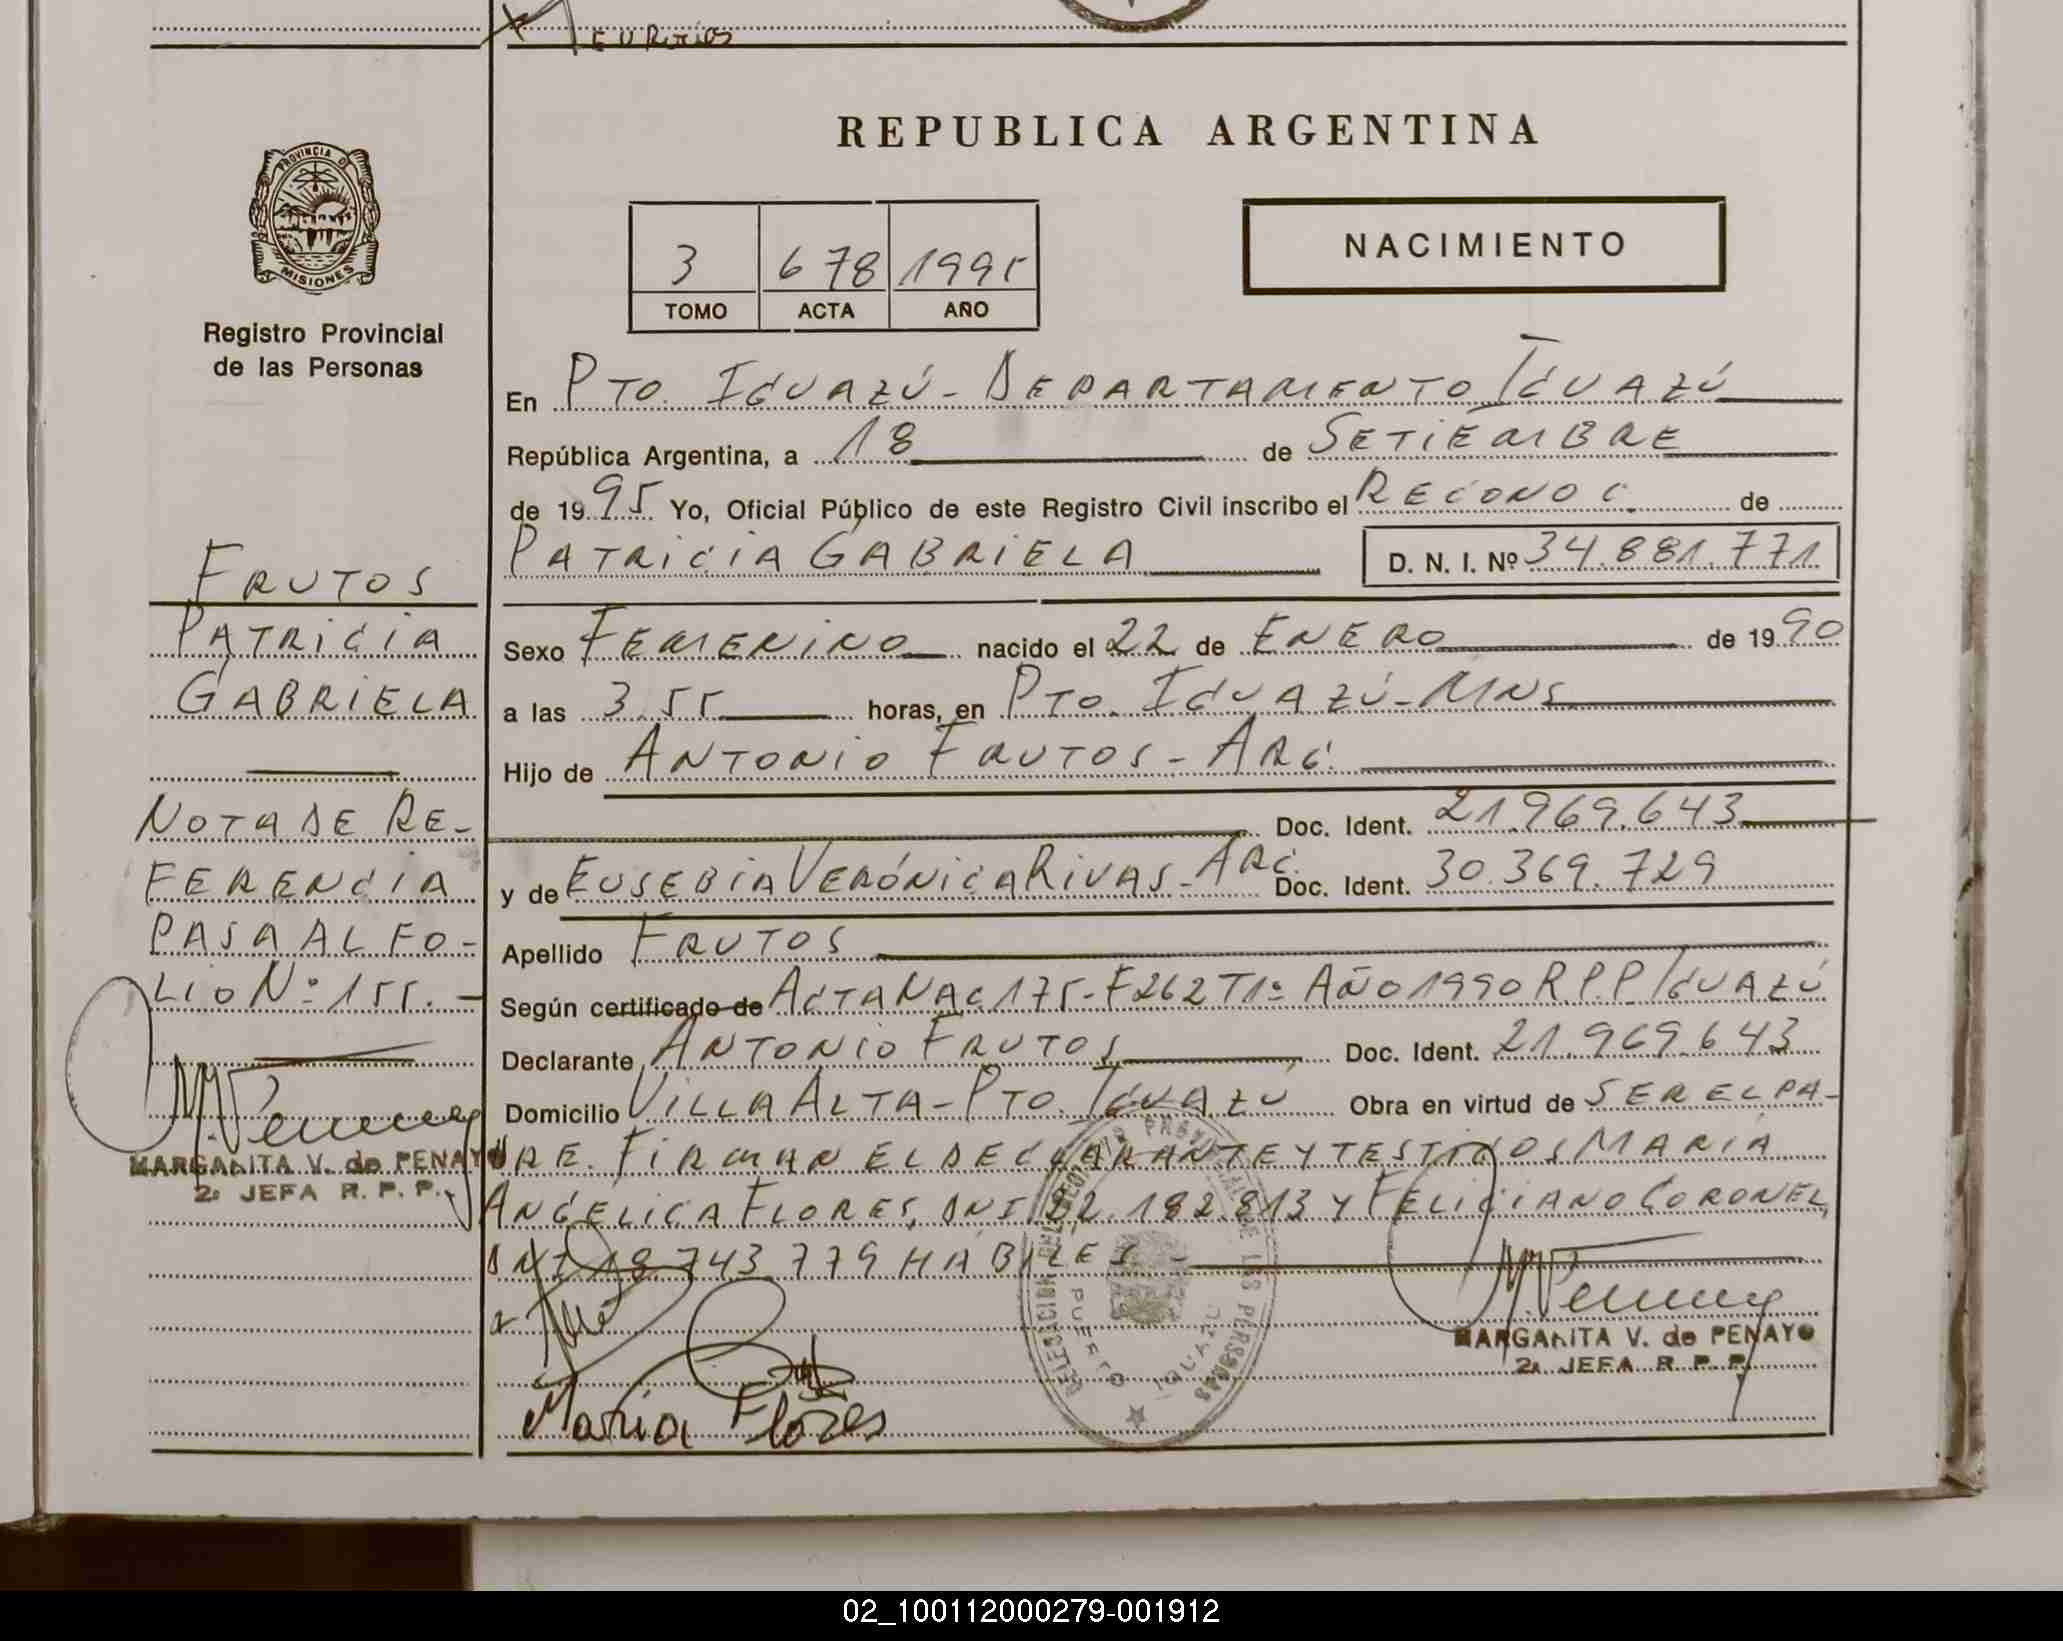 REPUBLICA ARGENTINA
PROVINCIA DE
MISIONES
Registro Provincial
de las Personas
3 678 1995
TOMO ACTA AÑO
NACIMIENTO
En PTO. IGUAZÚ - DEPARTAMENTO IGUAZÚ
República Argentina, a 18 de SETIEMBRE
de 1995 Yo, Oficial Público de este Registro Civil inscribo el RECONOC. de
PATRICIA GABRIELA D. N. I. Nº 34.881.771
Sexo FEMENINO nacido el 22 de ENERO de 1990
a las 3.55 horas, en PTO. IGUAZÚ - MNS
Hijo de ANTONIO FRUTOS - ARG.
Doc. Ident. 21.969.643
y de EUSEBIA VERÓNICA RIVAS - ARG. Doc. Ident. 30.369.729
Apellido FRUTOS
Según certificado de ACTA NAC 175 - F262 T1º AÑO 1990 R.P.P IGUAZÚ
Declarante ANTONIO FRUTOS Doc. Ident. 21.969.643
Domicilio VILLA ALTA - PTO. IGUAZÚ Obra en virtud de SER EL PA-
DRE. FIRMAN EL DECLARANTE Y TESTIGOS MARIA
ANGELICA FLORES, DNI 22.182.813 Y FELICIANO CORONEL,
DNI 18.743.779 HABILES -
MARGARITA V. de PENAYO
2a JEFA R. P. P.
Maria Flores
DELEGACION DEL REGISTRO PROVINCIAL DE LAS PERSONAS
PUERTO IGUAZU
FRUTOS
PATRICIA
GABRIELA
NOTA DE RE-
FERENCIA
PASA AL FO-
LIO Nº 155. -
MARGARITA V. de PENAYO
2a JEFA R. P. P.
02_100112000279-001912